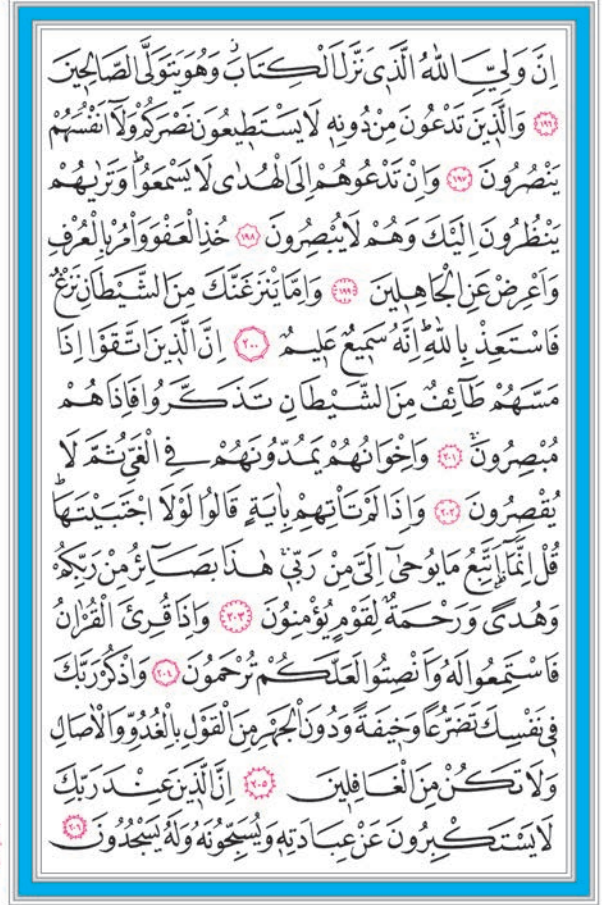 اِنَّ وَلِيِّـيَ اللّٰهُ الَّذٖي نَزَّلَ الْكِتَابَؗ وَهُوَ يَتَوَلَّى الصَّالِحٖينَ
﴿١٩٦﴾ وَالَّذٖينَ تَدْعُونَ مِنْ دُونِهٖ لَا يَسْتَطٖيعُونَ نَصْرَكُمْ وَلَٓا اَنْفُسَهُمْ
يَنْصُرُونَ ﴿١٩٧﴾ وَاِنْ تَدْعُوهُمْ اِلَى الْهُدٰى لَا يَسْمَعُواؕ وَتَرٰيهُمْ
يَنْظُرُونَ اِلَيْكَ وَهُمْ لَا يُبْصِرُونَ ﴿١٩٨﴾ خُذِ الْعَفْوَ وَأْمُرْ بِالْعُرْفِ
وَاَعْرِضْ عَنِ الْجَاهِلٖينَ ﴿١٩٩﴾ وَاِمَّا يَنْزَغَنَّكَ مِنَ الشَّيْطَانِ نَزْغٌ
فَاسْتَعِذْ بِاللّٰهِؕ اِنَّهُ سَمٖيعٌ عَلٖيمٌ ﴿٢٠٠﴾ اِنَّ الَّذٖينَ اتَّقَوْا اِذَا
مَسَّهُمْ طَٓائِفٌ مِنَ الشَّيْطَانِ تَذَكَّرُوا فَاِذَا هُمْ
مُبْصِرُونَۚ ﴿٢٠١﴾ وَاِخْوَانُهُمْ يَمُدُّونَهُمْ فِي الْغَيِّ ثُمَّ لَا
يُقْصِرُونَ ﴿٢٠٢﴾ وَاِذَا لَمْ تَأْتِهِمْ بِاٰيَةٍ قَالُوا لَوْلَا اجْتَبَيْتَهَاؕ
قُلْ اِنَّمَٓا اَتَّبِعُ مَا يُوحٰٓى اِلَيَّ مِنْ رَبّٖيۚ هٰذَا بَصَٓائِرُ مِنْ رَبِّكُمْ
وَهُدًى وَرَحْمَةٌ لِقَوْمٍ يُؤْمِنُونَ ﴿٢٠٣﴾ وَاِذَا قُرِئَ الْقُرْاٰنُ
فَاسْتَمِعُوا لَهُ وَاَنْصِتُوا لَعَلَّكُمْ تُرْحَمُونَ ﴿٢٠٤﴾ وَاذْكُرْ رَبَّكَ
فٖي نَفْسِكَ تَضَرُّعًا وَخٖيفَةً وَدُونَ الْجَهْرِ مِنَ الْقَوْلِ بِالْغُدُوِّ وَالْاٰصَالِ
وَلَا تَكُنْ مِنَ الْغَافِلٖينَ ﴿٢٠٥﴾ اِنَّ الَّذٖينَ عِنْدَ رَبِّكَ
لَا يَسْتَكْبِرُونَ عَنْ عِبَادَتِهٖ وَيُسَبِّحُونَهُ وَلَهُ يَسْجُدُونَ ﴿٢٠٦﴾